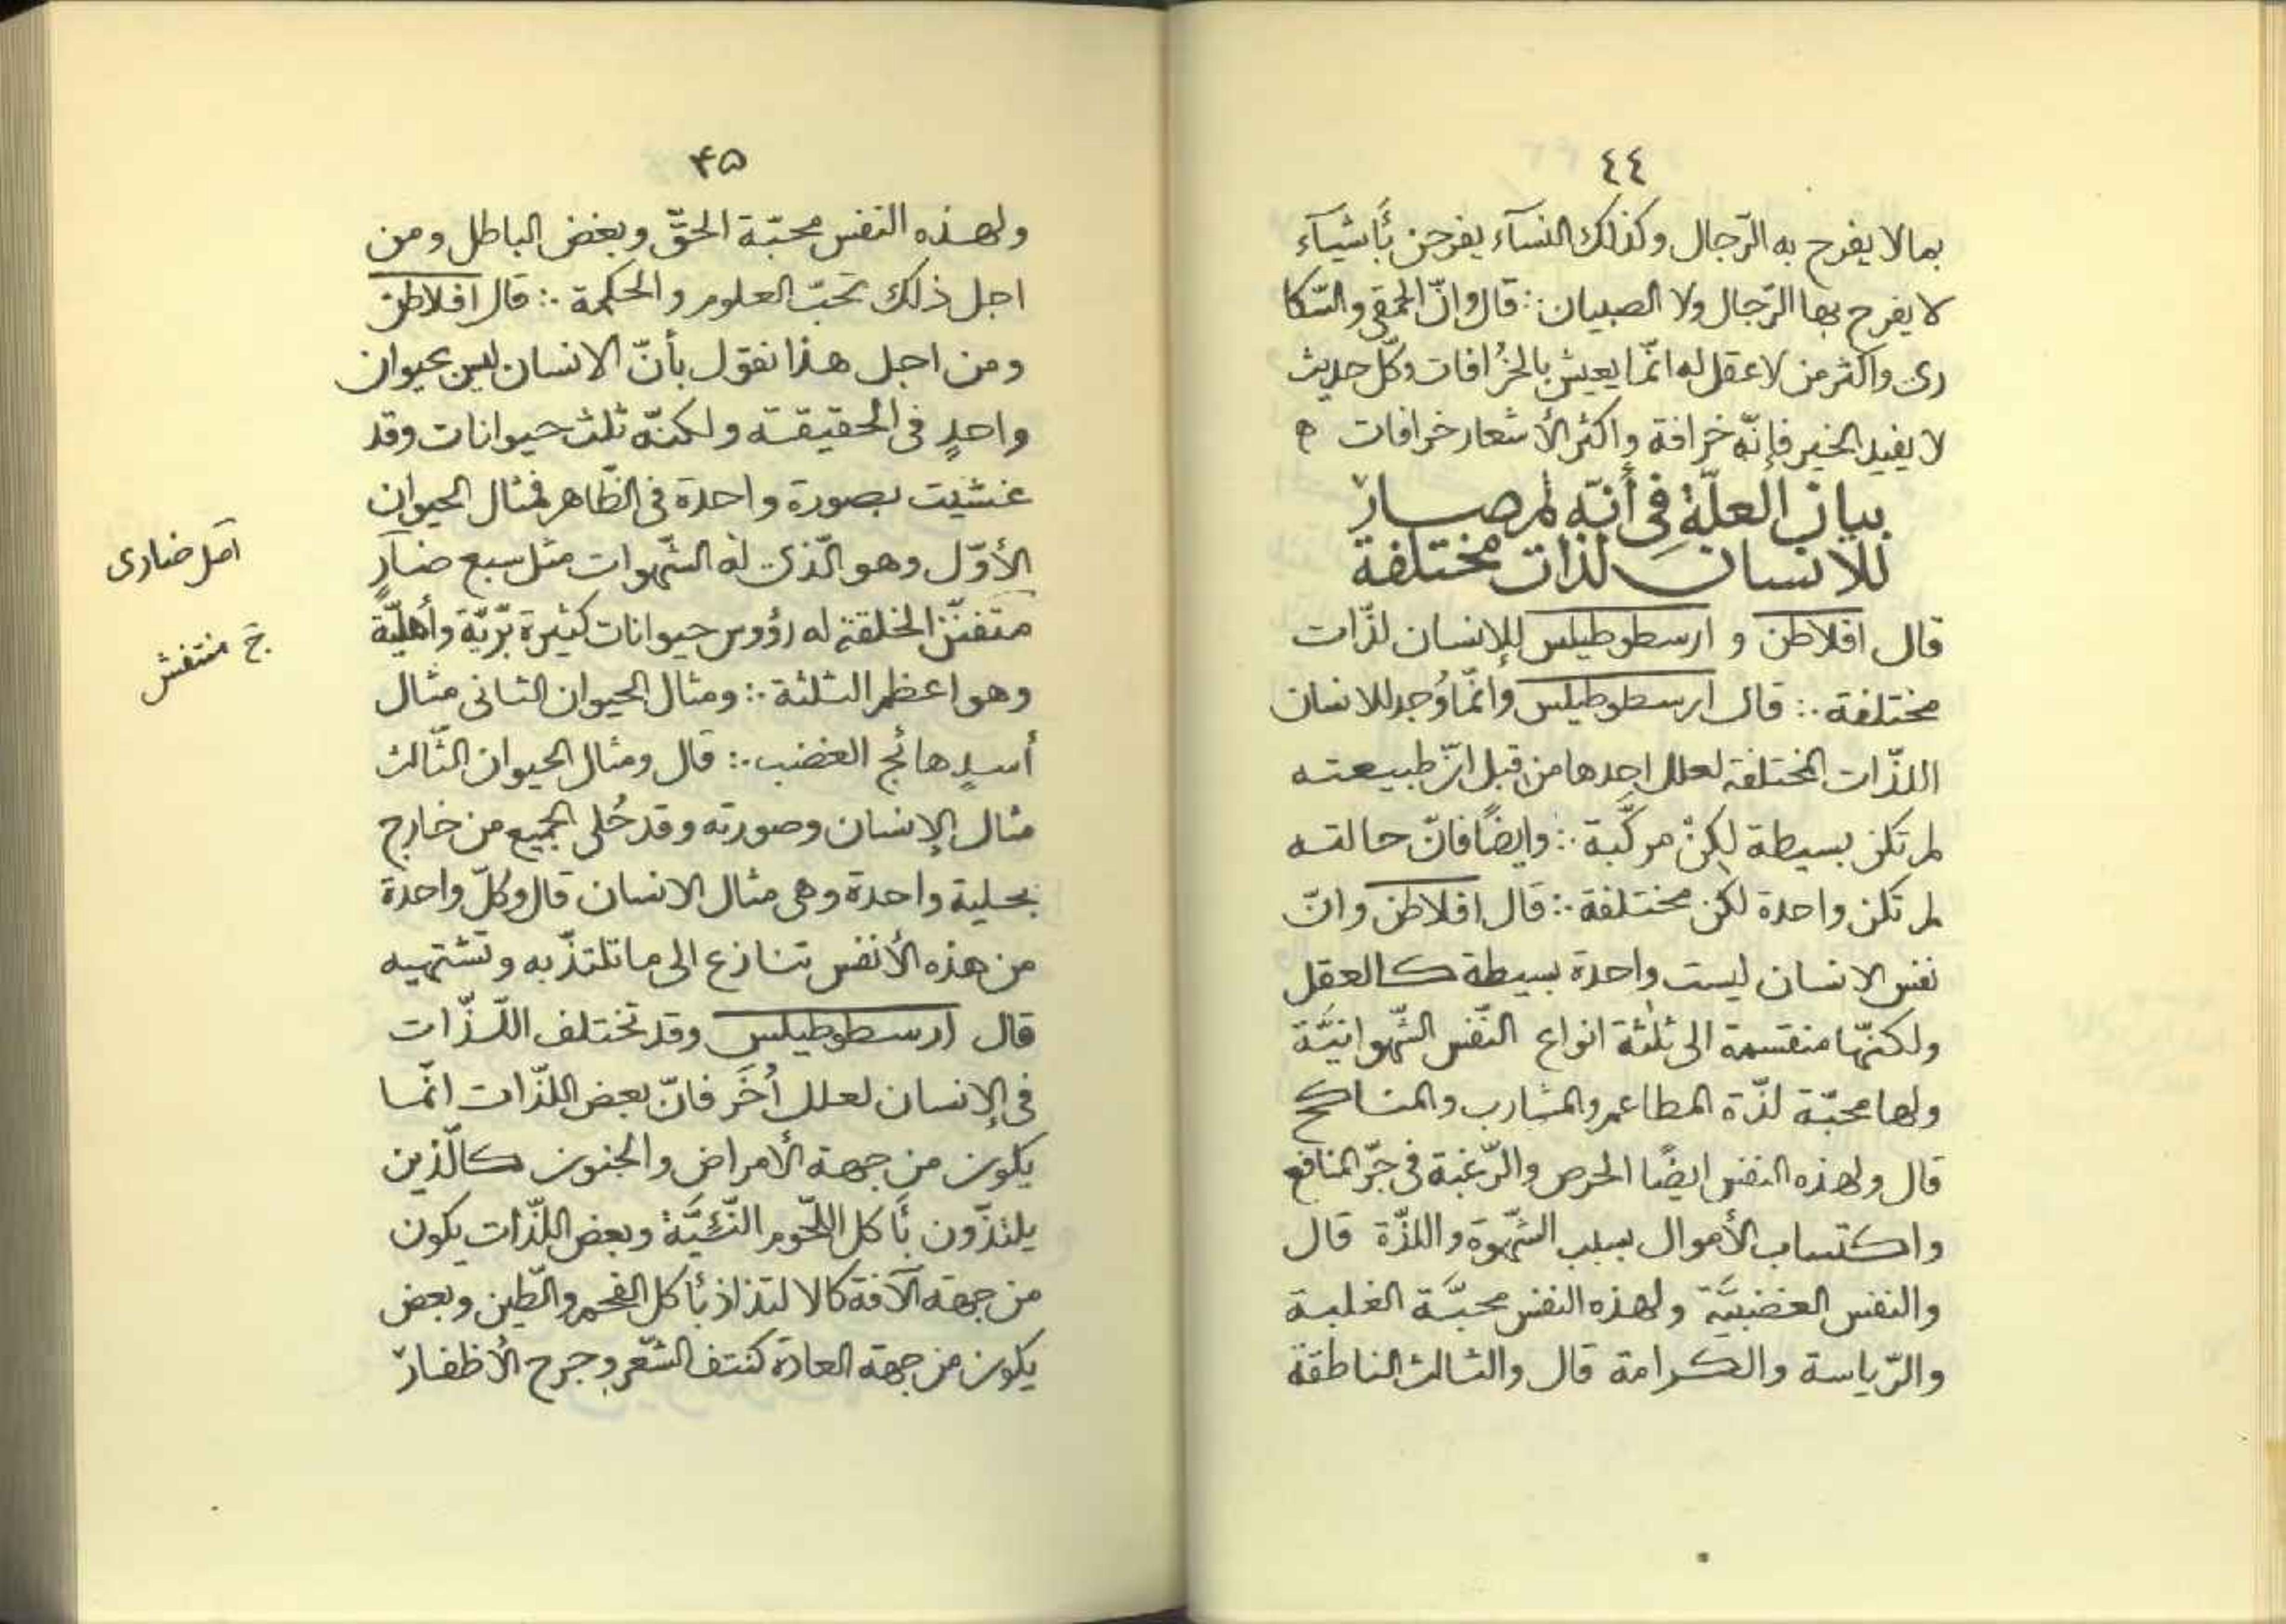 ٤٤
بمالا يفرح به الرّجال وكذلك النسآء يفرحن بأشيآء
لا يفرح بها الرّجال ولا الصبيان ∴ قال وانّ الحمقى والسّكا
رى واكثر من لا عقل له انّما يعيش بالخُرافات وكلّ حديث
لا يفيد الخير فإنّه خرافة واكثر الأشعار خرافات ه
بيان العلّة فى أنّه لم صار
للانسان لذات مختلفة
قال افلاطن و ارسطوطيلس للإنسان لذّات
مختلفة ∴ قال ارسطوطيلس وانّما وُجد للانسان
اللذّات المختلفة لعلل احدها من قبل انّ طبيعته
لم تكن بسيطة لكِنْ مركّبة ∴ وايضًا فانّ حالته
لم تكن واحدة لكن مختلفة ∴ قال افلاطن وانّ
نفس الانسان ليست واحدة بسيطة كالعقل
ولكنّها منقسمة الى ثلٰثة انواع النّفس الشّهوانيّة
ولها محبّة لذّة المطاعم والمشارب والمناكح
قال ولهذه النفس ايضًا الحرص والرّغبة فى جرّ المنافع
واكتساب الأموال بسبب الشّهوة واللذّة قال
والنفس الغضبيّة ولهذه النفس محبّة الغلبة
والرّياسة والكرامة قال والثالث الناطقة
۴۵
ولهذه النفس محبّة الحقّ وبغض الباطل ومن
اجل ذلك تحبّ العلوم والحكمة ∴ قال افلاطن
ومن اجل هذا نقول بأنّ الانسان ليس بحيوان
واحدٍ فى الحقيقة ولكنّه ثلث حيوانات وقد
غشيت بصورة واحدة فى الظّاهر فمثال الحيوان
الأوّل وهو الّذى له الشّهوات مثل سبع ضآرٍ
متفنّن الخلقة له رؤوس حيوانات كثيرة برّيّة وأهليّة
وهو اعظم الثلثة ∴ ومثال الحيوان الثانى مثال
أسدٍ هائج الغضب ∴ قال ومثال الحيوان الثّالث
مثال الإنسان وصورته وقد حُلى الجميع من خارج
بحلية واحدة وهى مثال الانسان قال وكلّ واحدة
من هذه الأنفس تنازع الى ما تلتذّ به وتشتهيه
قال ارسطوطيلس وقد تختلف اللّذّات
فى الإنسان لعلل أُخَر فانّ بعض اللذّات انّما
يكون من جهة الأمراض والجنون كالّذين
يلتذّون بأكل اللّحوم النّئيّة وبعض اللذّات يكون
من جهة الآفة كالالتذاذ بأكل الفحم والطّين وبعض
يكون من جهة العادة كنتف الشّعر وجرح الأظفار
اصل ضارى
خ منتفش